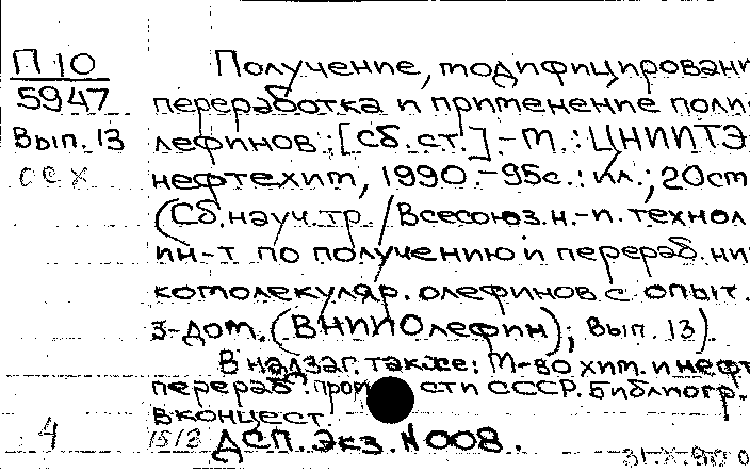 П 10
5947
Вып. 13
осх
Получение, модифицировани
переработка и применение поли
лефинов: [Сб. ст.]. - М.: ЦНИИТЭ
нефтехим, 1990. - 95с.: ил.; 20см
(Сб. науч. тр. / Всесоюз. н.-и. технол
ин-т по получению и перераб. ни
комолекуляр. олефинов с опыт.
з-дом. (ВНИИОлефин); Вып. 13)
В надзаг. также: М-во хим. и нефт
перераб. пром сти СССР. Библиогр.
в конце ст
4 1513 ДСП. Экз. N 008.